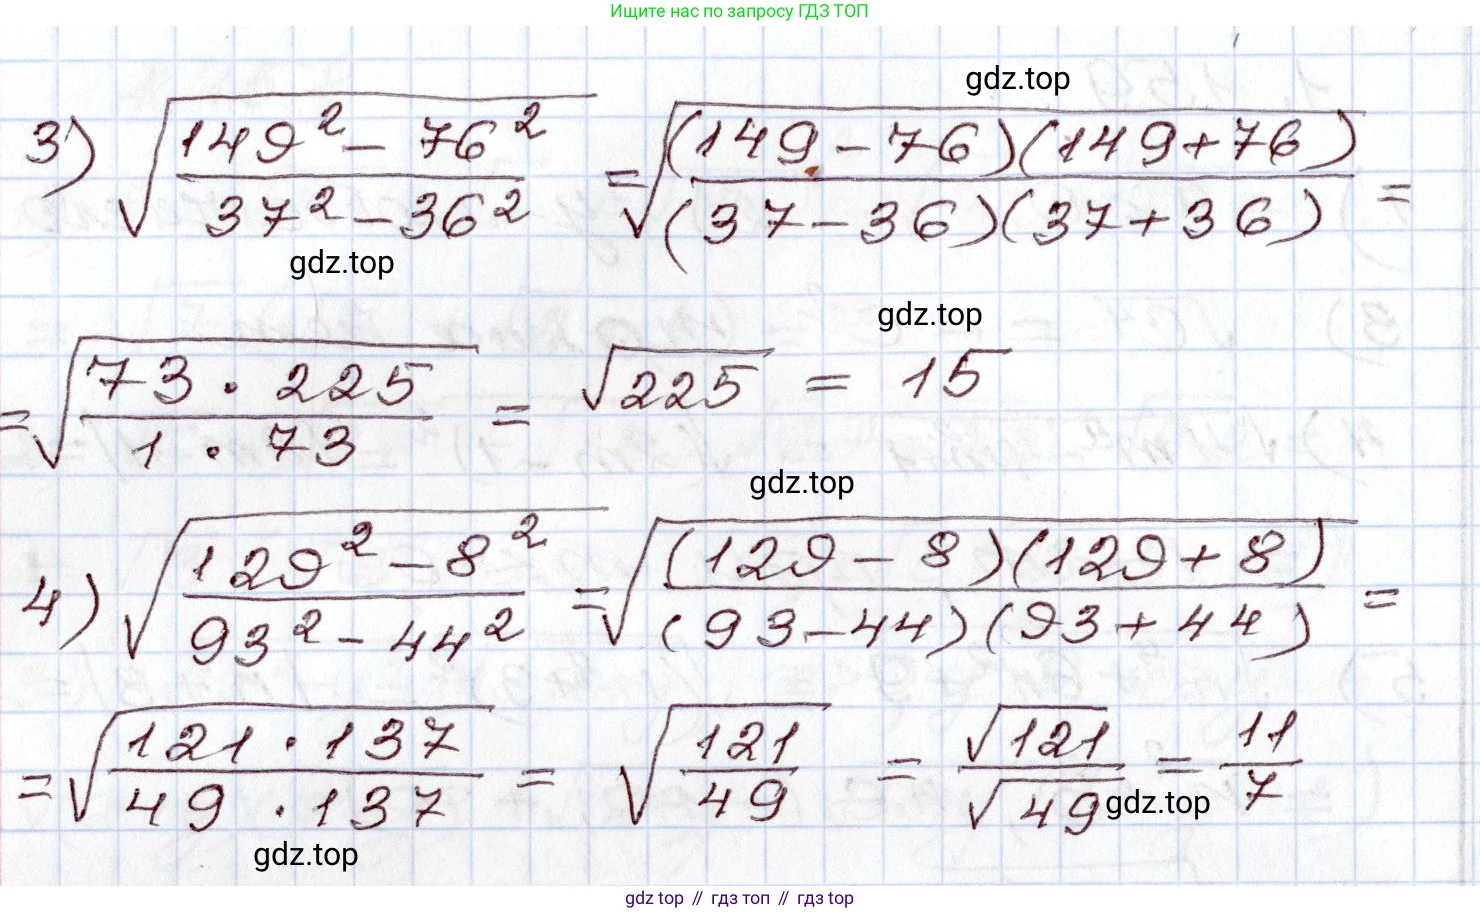 Ищите нас по запросу ГДЗ ТОП
gdz.top
3) √((149² − 76²)/(37² − 36²)) = √((149 − 76)(149 + 76)/((37 − 36)(37 + 36))) =
gdz.top
gdz.top
= √((73 · 225)/(1 · 73)) = √225 = 15
gdz.top
4) √((129² − 8²)/(93² − 44²)) = √((129 − 8)(129 + 8)/((93 − 44)(93 + 44))) =
= √((121 · 137)/(49 · 137)) = √(121/49) = √121/√49 = 11/7
gdz.top
gdz.top
gdz top // гдз топ // gdz top